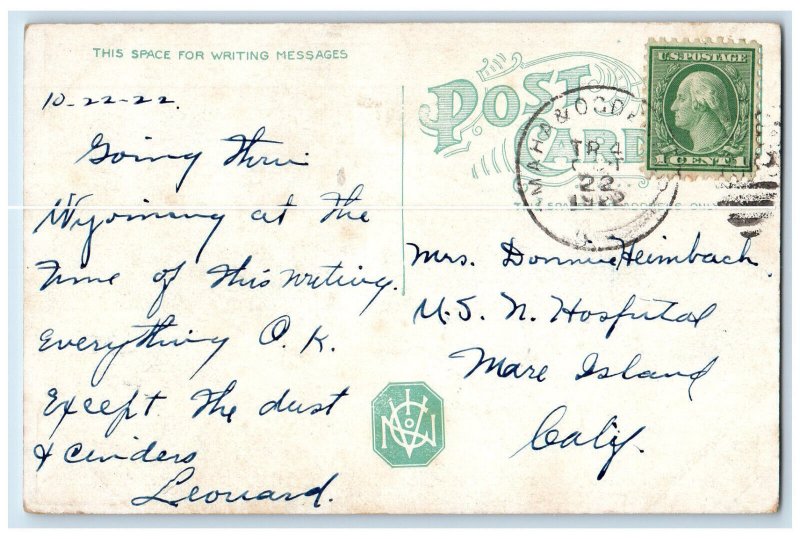 THIS SPACE FOR WRITING MESSAGES
POST CARD
10-22-22.
Going thru
Wyoming at the
time of this writing.
Everything O.K.
Except the dust
& cinders
Leonard.
OMAHA & OGDEN
TR 4
OCT
22
1922
U.S. POSTAGE
1 CENT 1
Mrs. Donnie Heimbach.
U.S. N. Hospital
Mare Island
Calif.